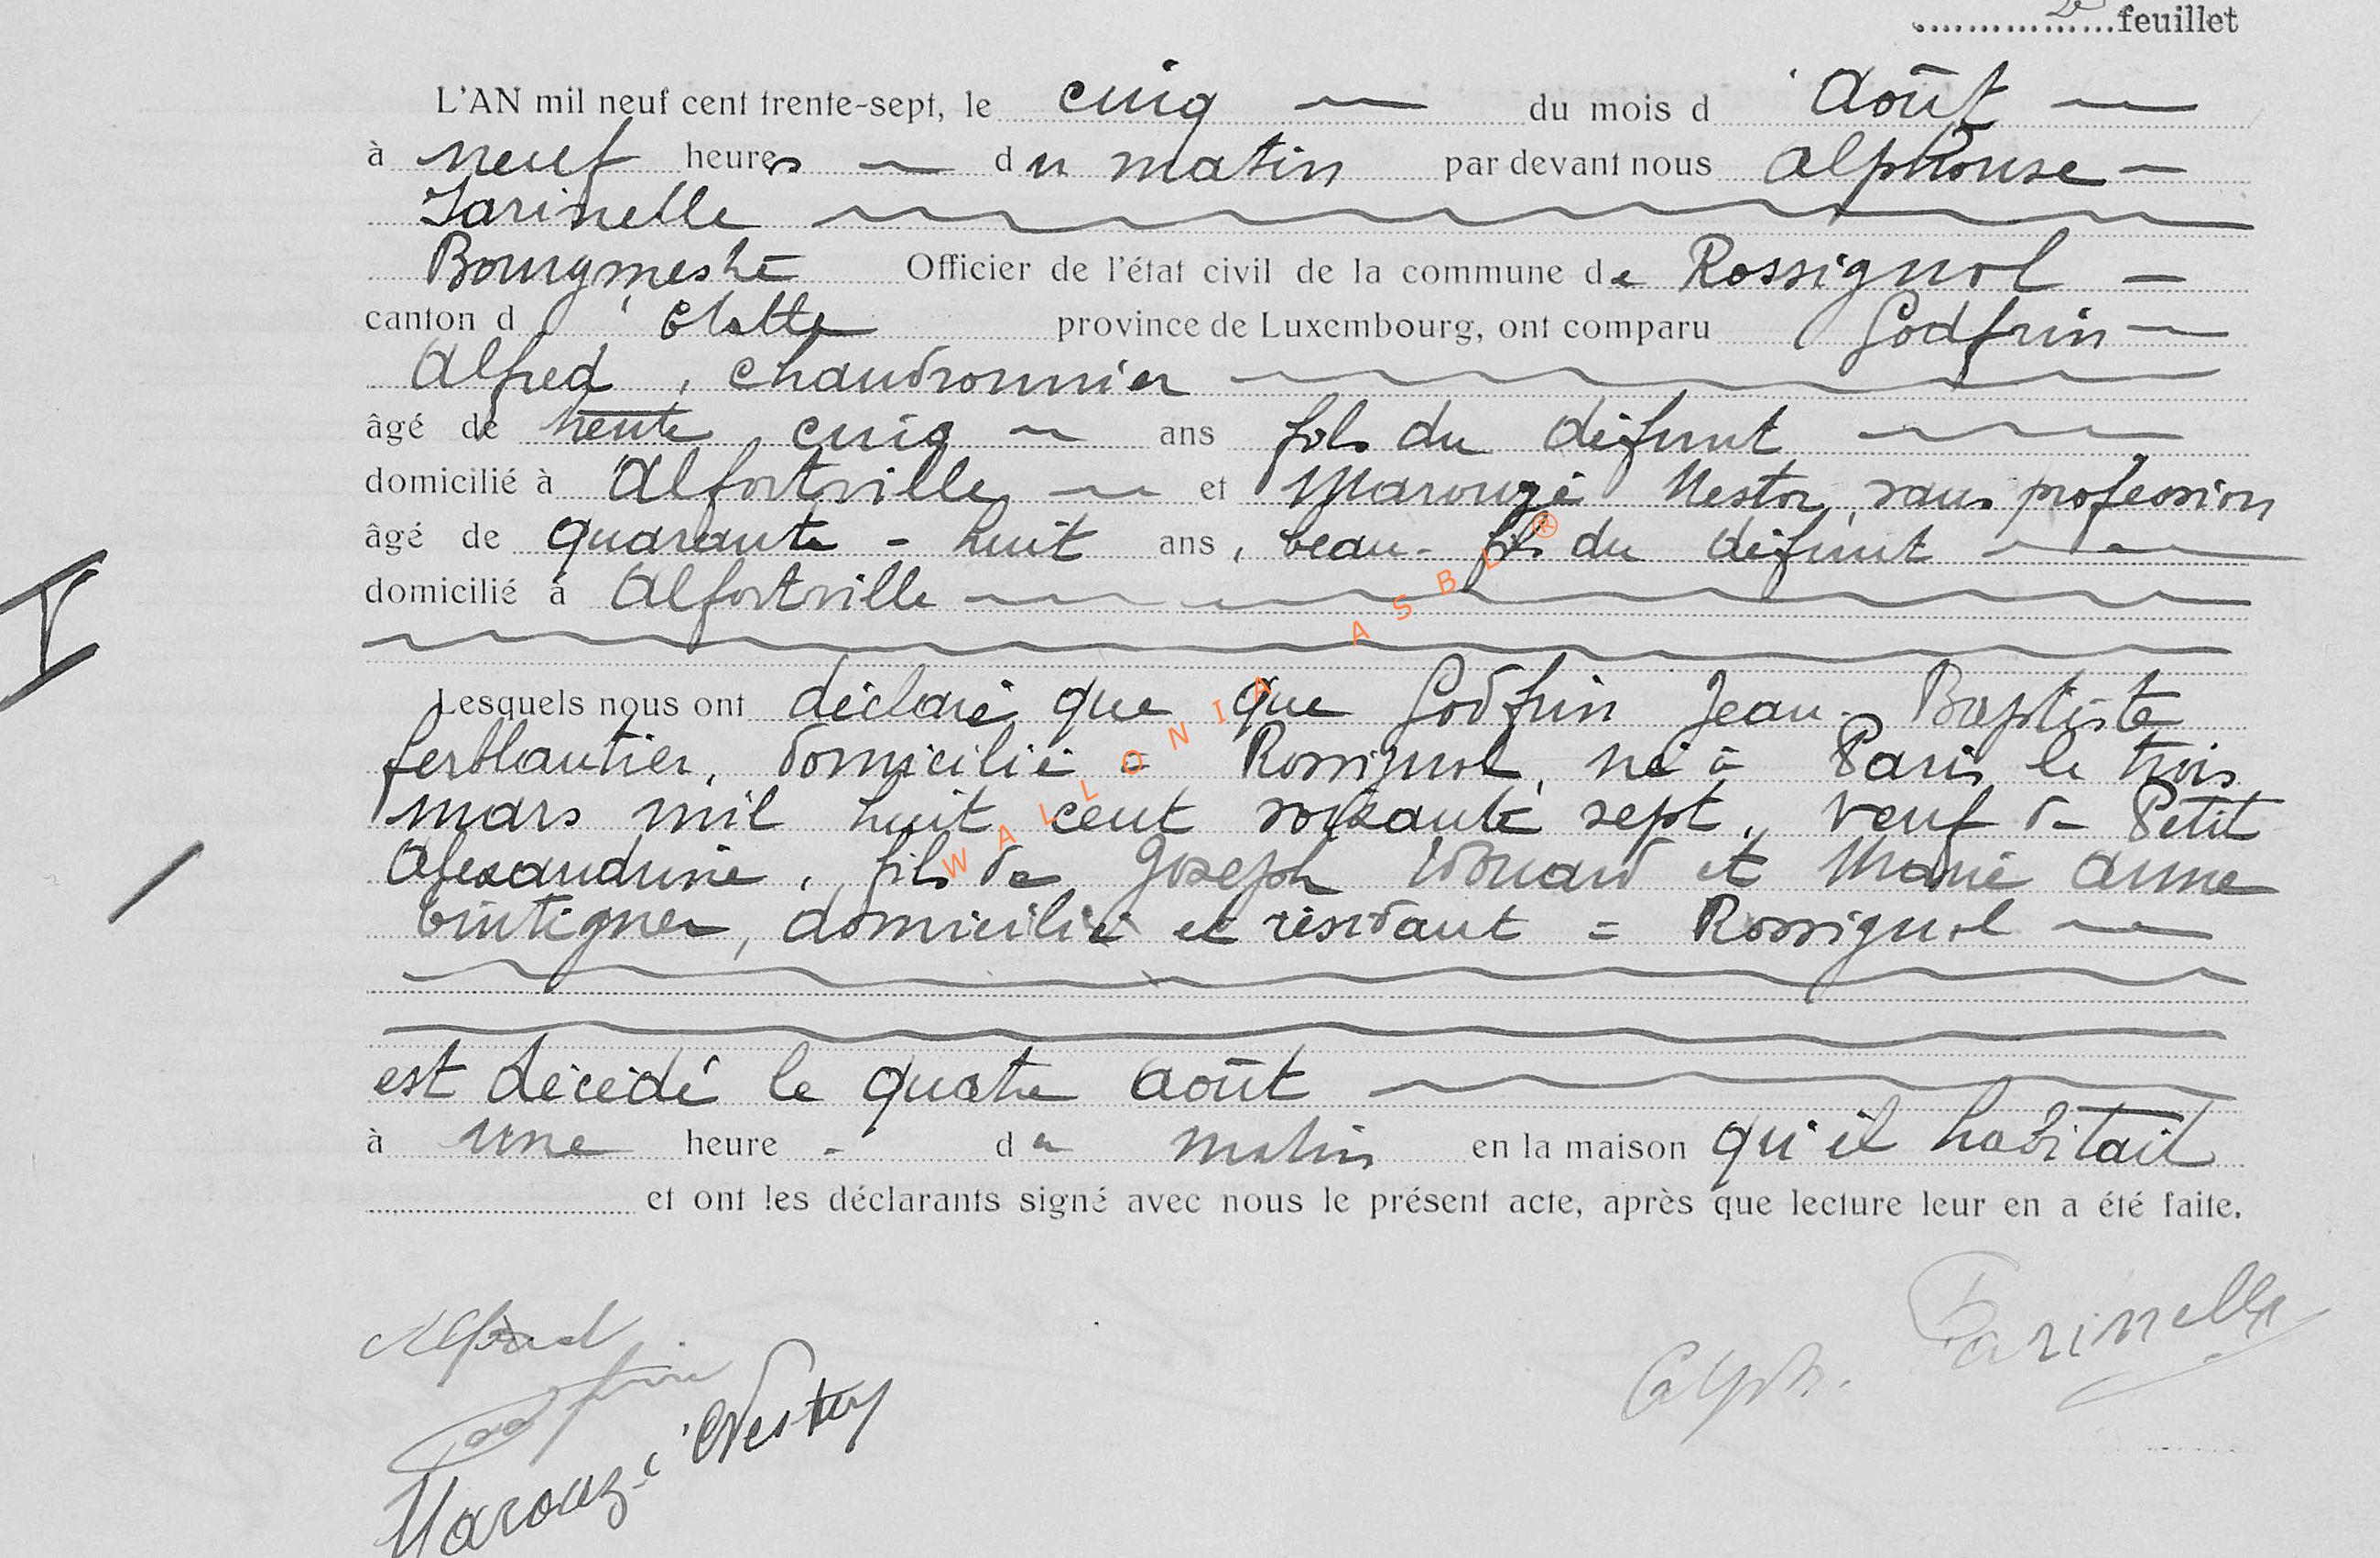 2e feuillet
L'AN mil neuf cent trente-sept, le cinq du mois d'Août
à neuf heures du matin par devant nous Alphonse
Farinelle
Bourgmestre Officier de l'état civil de la commune de Rossignol
canton d'Etalle province de Luxembourg, ont comparu Godfrin
Alfred, chaudronnier
âgé de trente cinq ans fils du défunt
domicilié à Alfortville et Marouzé Nestor, sans profession
âgé de quarante-huit ans, beau-fils du défunt
domicilié à Alfortville
Lesquels nous ont déclaré que que Godfrin Jean-Baptiste
ferblantier, domicilié à Rossignol, né à Paris le trois
mars mil huit cent soixante sept, veuf de Petit
Alexandrine, fils de Joseph Edouard et Marie Anne
domicilié et résidant à Rossignol
est décédé le quatre août
à une heure du matin en la maison qu'il habitait
et ont les déclarants signé avec nous le présent acte, après que lecture leur en a été faite.
Alfred
Godfrin
Marouzé Nestor
Alph. Farinelle
WALLONIA ASBL®